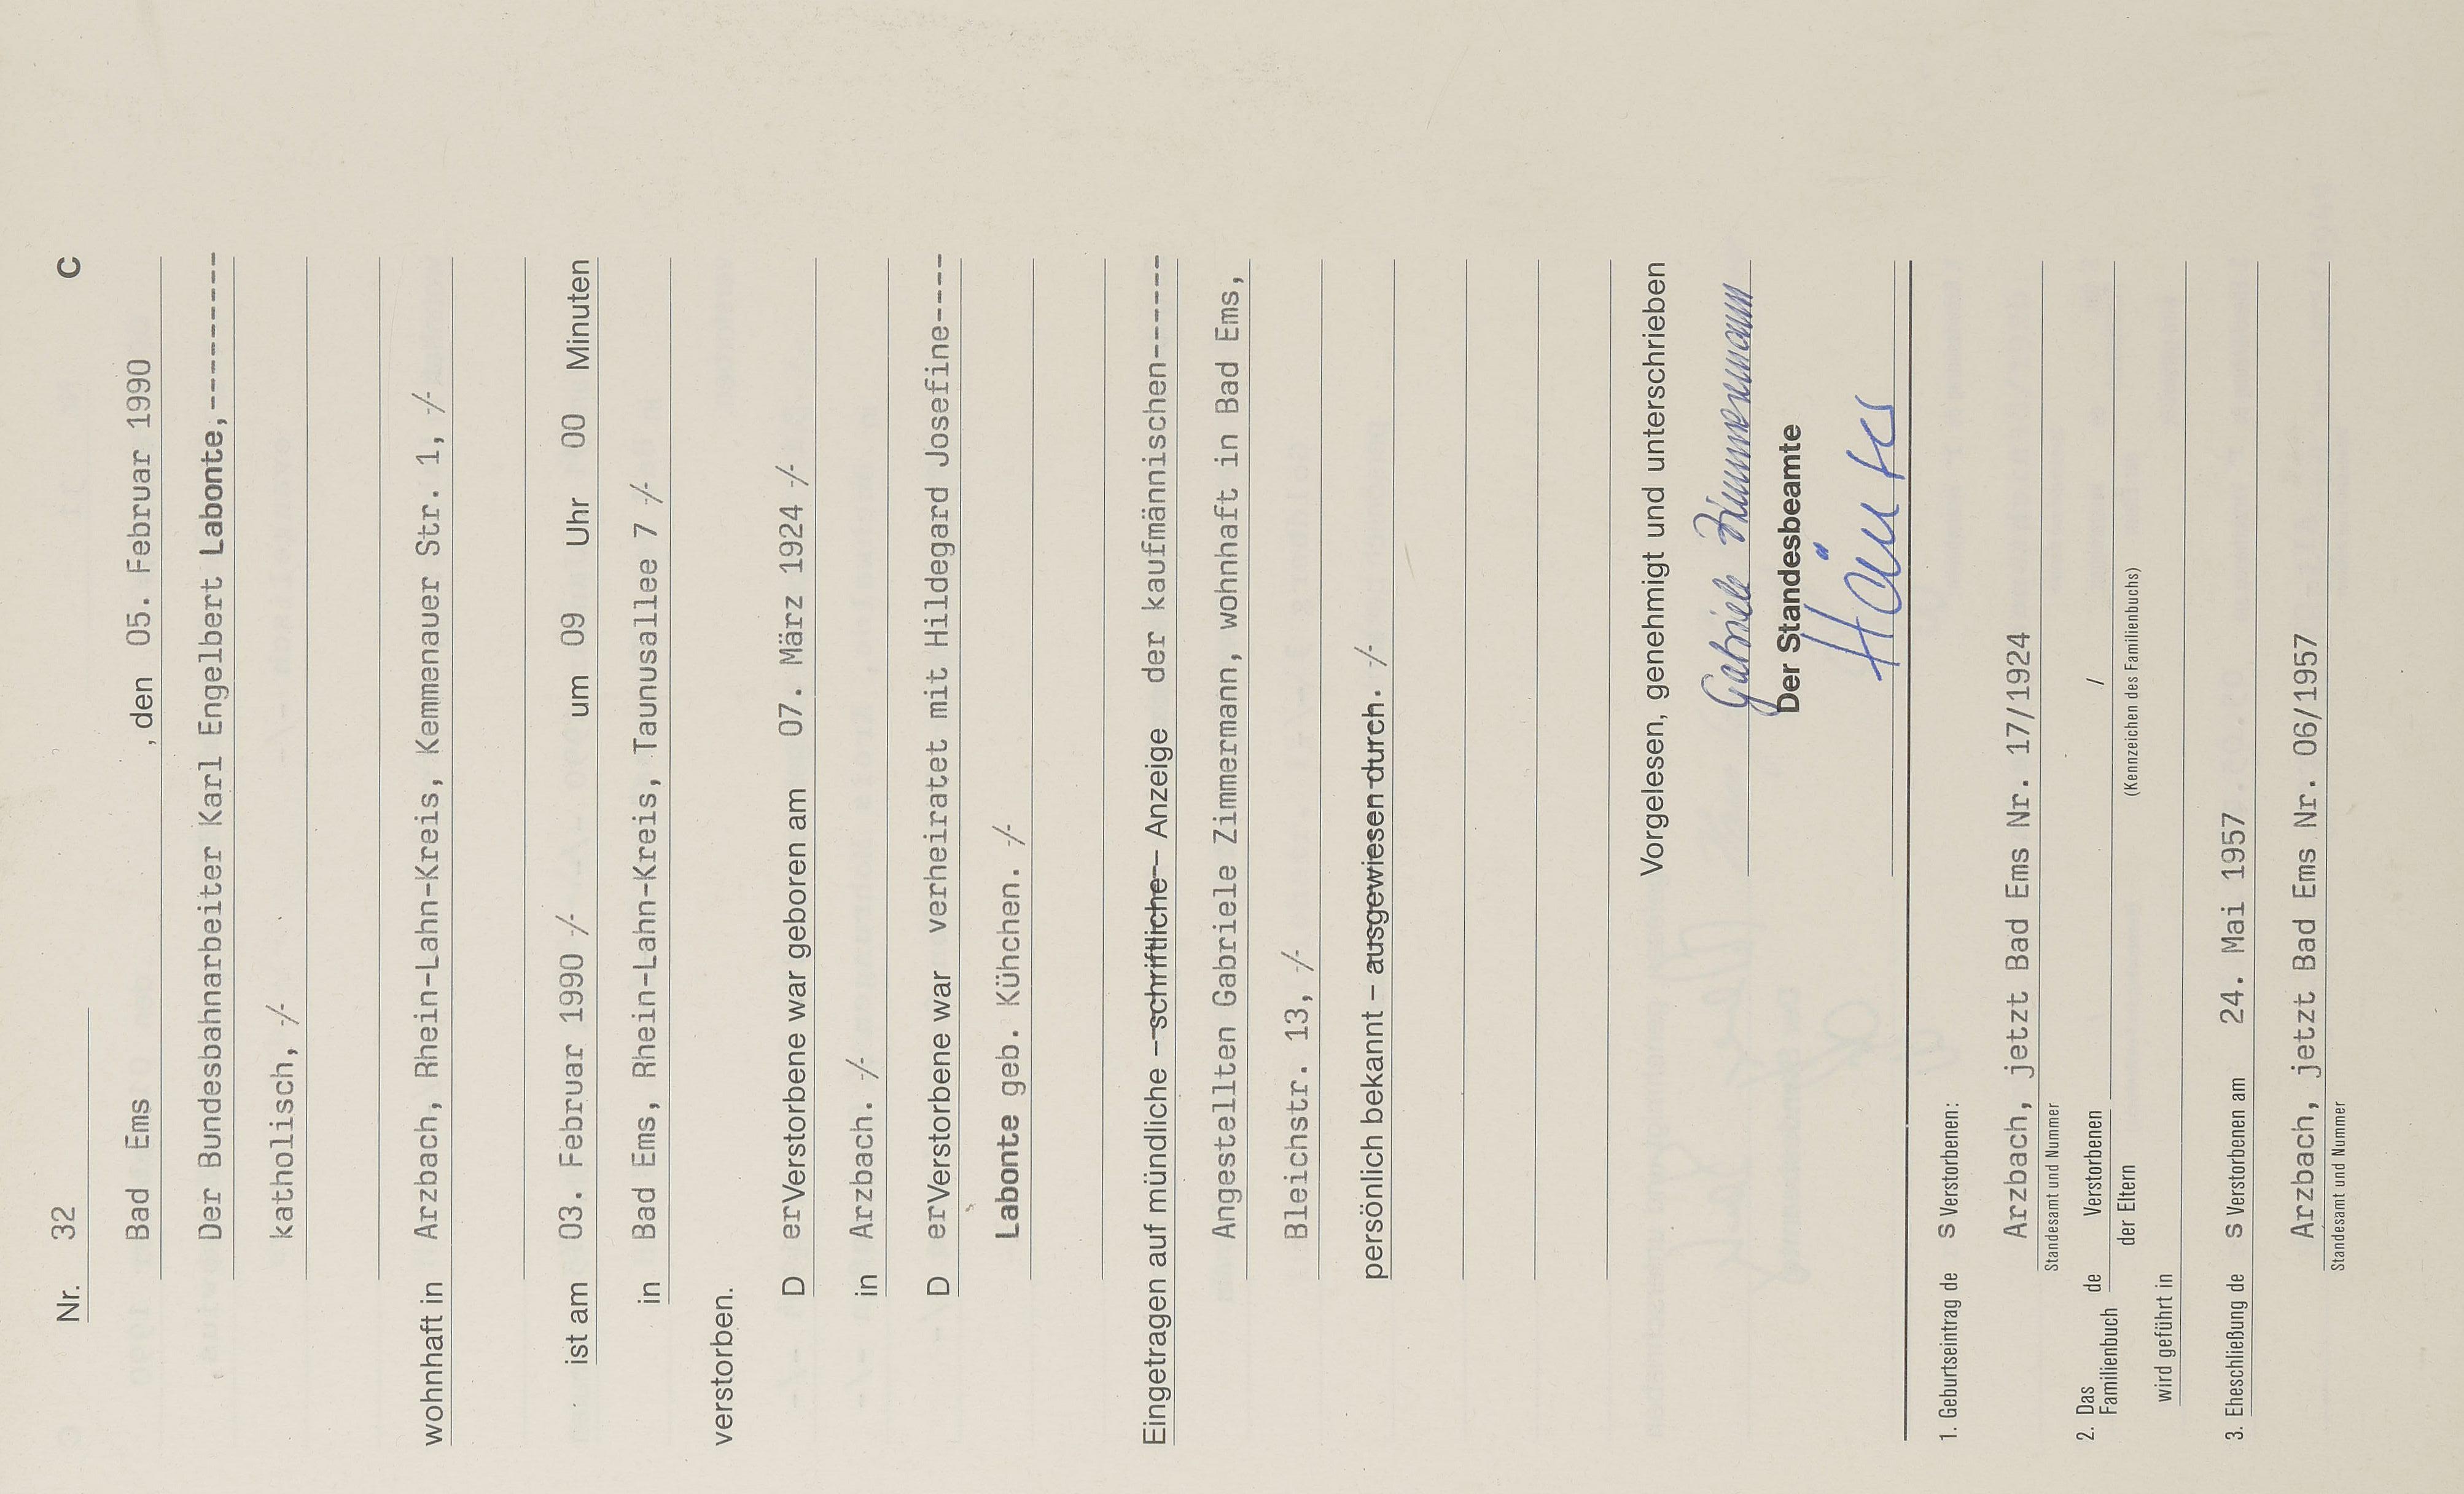 Nr. 32 C
Bad Ems , den 05. Februar 1990
Der Bundesbahnarbeiter Karl Engelbert Labonte,---------
katholisch, -/-
wohnhaft in Arzbach, Rhein-Lahn-Kreis, Kemmenauer Str. 1, -/-
ist am 03. Februar 1990 -/- um 09 Uhr 00 Minuten
in Bad Ems, Rhein-Lahn-Kreis, Taunusallee 7 -/-
verstorben.
D er Verstorbene war geboren am 07. März 1924 -/-
in Arzbach. -/-
D er Verstorbene war verheiratet mit Hildegard Josefine----
Labonte geb. Kühchen. -/-
Eingetragen auf mündliche – schriftliche – Anzeige der kaufmännischen------
Angestellten Gabriele Zimmermann, wohnhaft in Bad Ems,
Bleichstr. 13, -/-
persönlich bekannt – ausgewiesen durch. -/-
Vorgelesen, genehmigt und unterschrieben
Gabriele Zimmermann
Der Standesbeamte
Häuter
1. Geburtseintrag de s Verstorbenen:
Arzbach, jetzt Bad Ems Nr. 17/1924
Standesamt und Nummer
2. Das Familienbuch de Verstorbenen /
der Eltern (Kennzeichen des Familienbuchs)
wird geführt in
3. Eheschließung de s Verstorbenen am 24. Mai 1957
Arzbach, jetzt Bad Ems Nr. 06/1957
Standesamt und Nummer